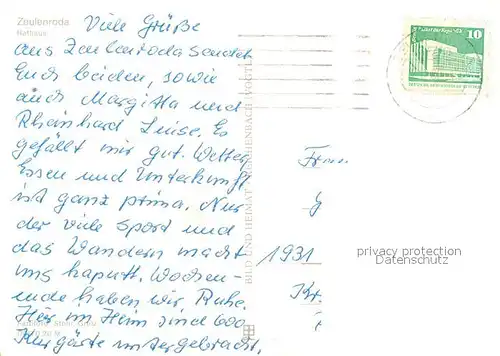 Zeulenroda
Rathaus
Viele Grüße
aus Zeulenroda sendet
Euch beiden, sowie
auch Margitta und
Rheinhard Luise. Es
gefällt mir gut. Wetter
Essen und Unterkunft
ist ganz prima. Nur
der viele Sport und
das Wandern macht
uns kaputt. Wochen-
ende haben wir Ruhe.
Hier im Heim sind 600
Kurgäste untergebracht.
10
BILD UND HEIMAT REICHENBACH (VOGTL)
Frau
1931
privacy protection
Datenschutz